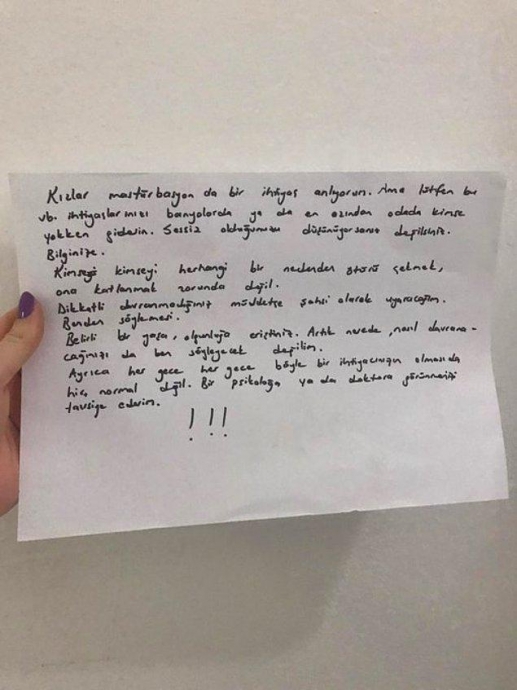 Kızlar mastürbasyon da bir ihtiyaç anlıyorum. Ama lütfen bu
vb. ihtiyaçlarınızı banyolarda ya da en azından odada kimse
yokken giderin. Sessiz olduğunuzu düşünüyorsanız değilsiniz.
Bilginize.
Kimseyi kimseyi herhangi bir nedenden ötürü çekmek,
ona katlanmak zorunda değil.
Dikkatli davranmadığınız müddetçe şahsi olarak uyaracağım.
Benden söylemesi.
Belirli bir yaşa, olgunluğa eriştiniz. Artık nerede, nasıl davrana-
cağınızı da ben söyleyecek değilim.
Ayrıca her gece her gece böyle bir ihtiyacınızın olması da
hiç normal değil. Bir psikoloğa ya da doktora görünmenizi
tavsiye ederim.
! ! !